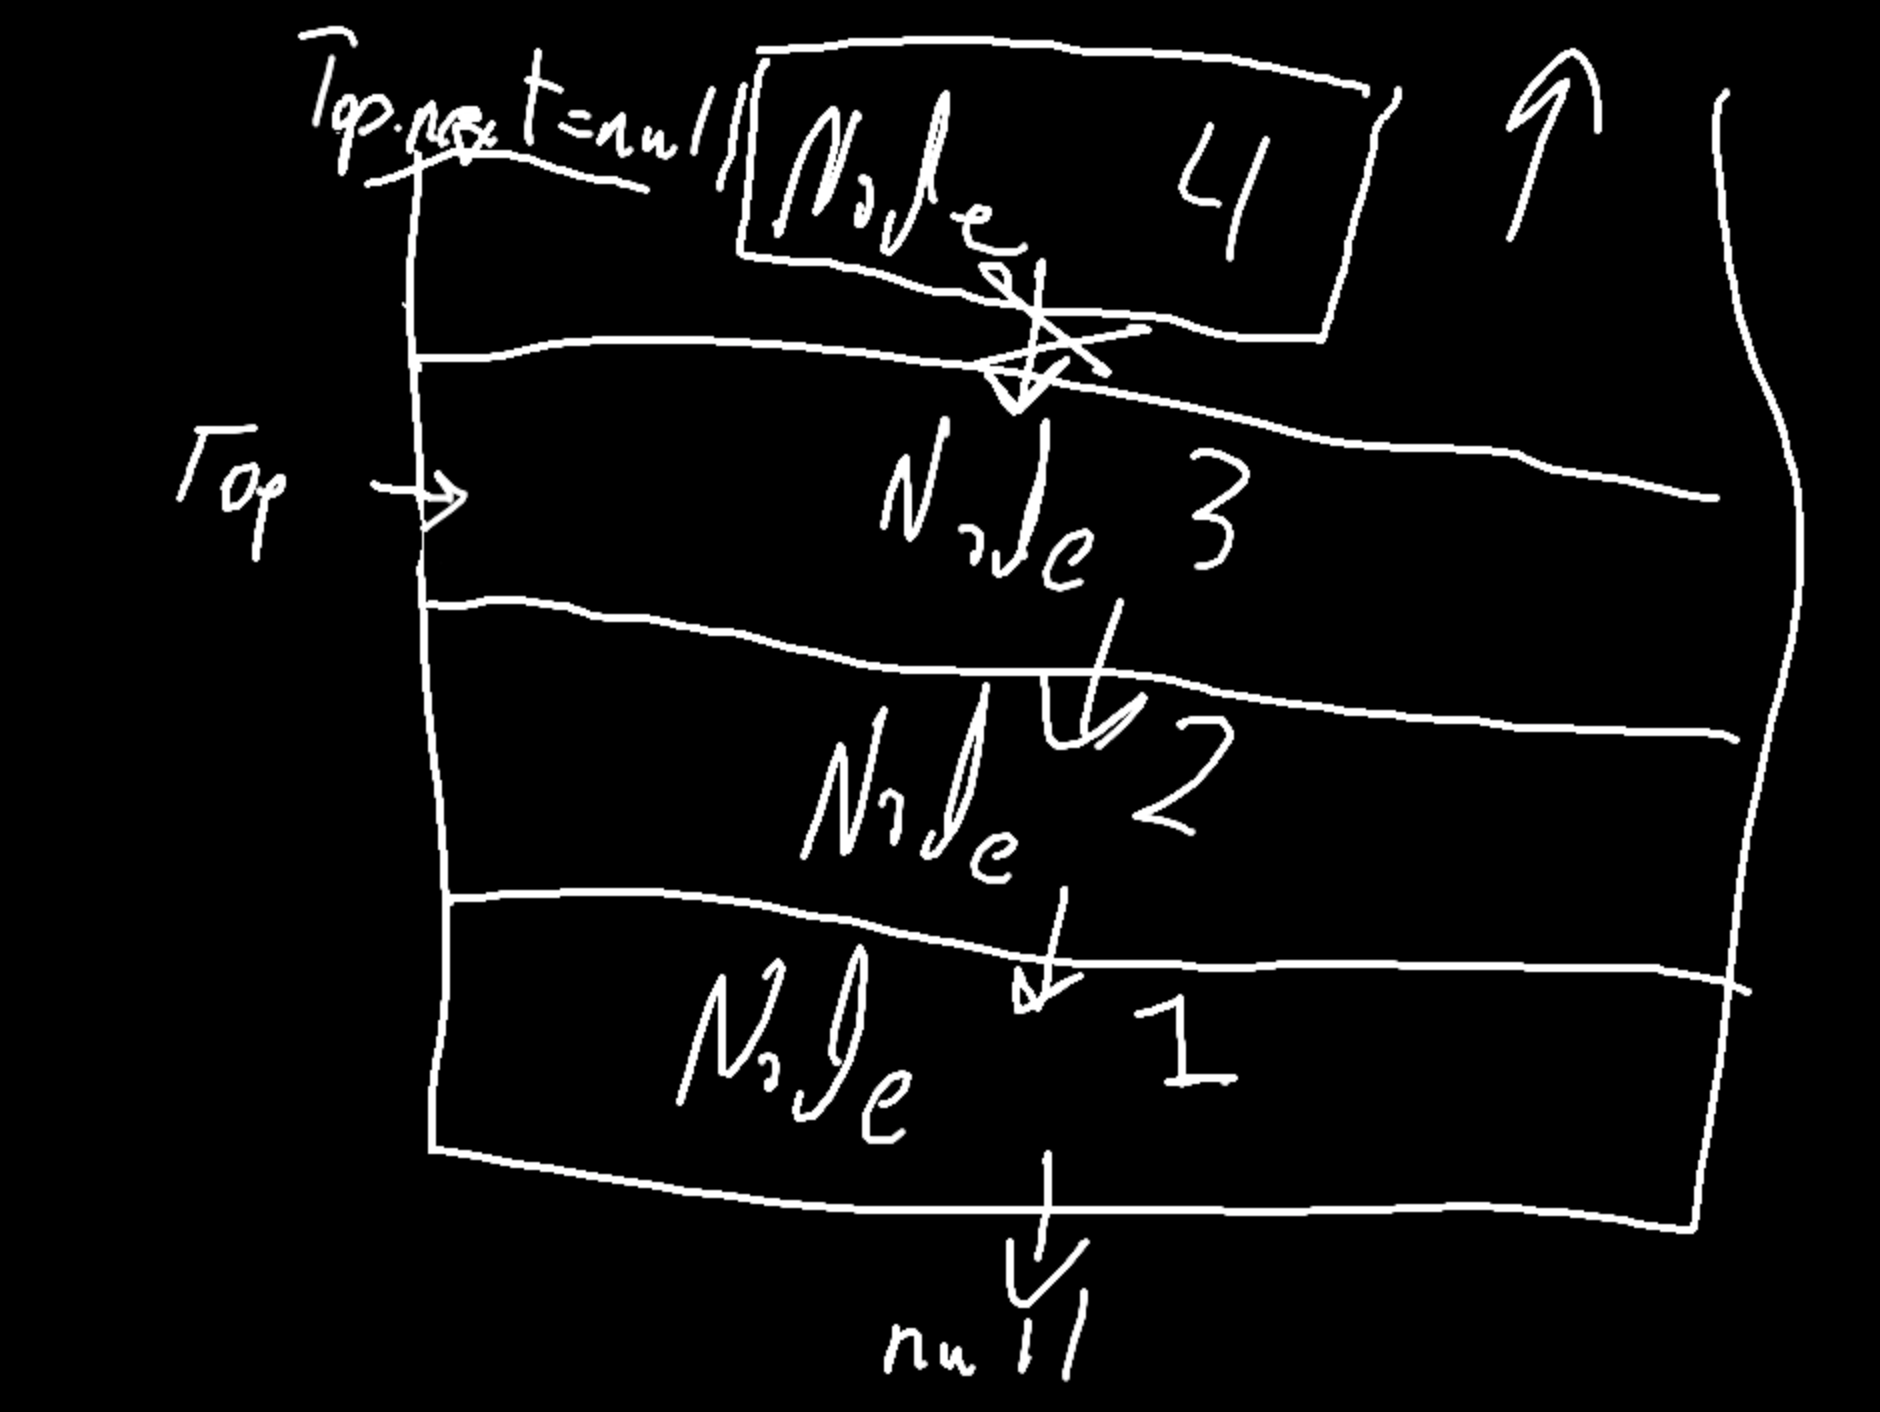 Top.next=null
Node 4
Top
Node 3
Node 2
Node 1
null